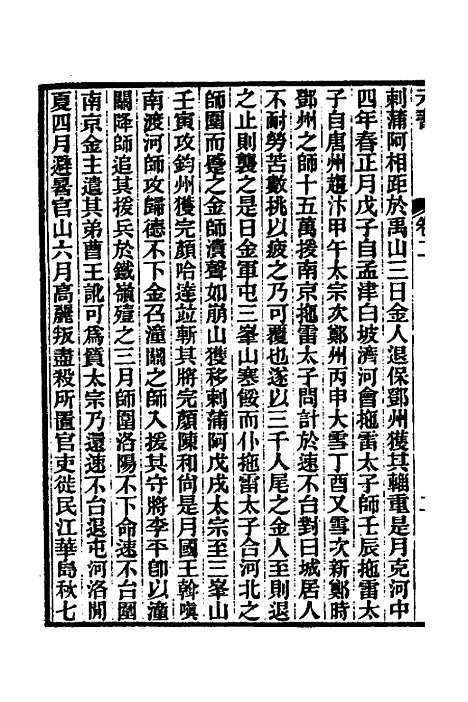 元書 卷二 二
刺蒲阿相距於禹山三日金人退保鄧州獲其輜重是月克河中
四年春正月戊子自孟津白坡濟河會拖雷太子師壬辰拖雷太
子自唐州趨汴甲午太宗次鄭州丙申大雪丁酉又雪次新鄭時
鄧州之師十五萬援南京拖雷太子問計於速不台對曰城居人
不耐勞苦數挑以疲之乃可覆也遂以三千人尾之金人至則退
之止則襲之是日金軍屯三峯山寒餒而仆拖雷太子合河北之
師圍而蹙之金師潰聲如崩山獲移刺蒲阿戊戌太宗至三峯山
壬寅攻鈞州獲完顏哈達竝斬其將完顏陳和尙是月國王斡嗔
南渡河師攻歸德不下金召潼關之師入援其守將李平卽以潼
關降師追其援兵於鐵嶺殪之三月師圍洛陽不下命速不台圍
南京金主遣其弟曹王訛可爲質太宗乃還速不台退屯河洛閒
夏四月避暑官山六月高麗叛盡殺所置官吏徙民江華島秋七